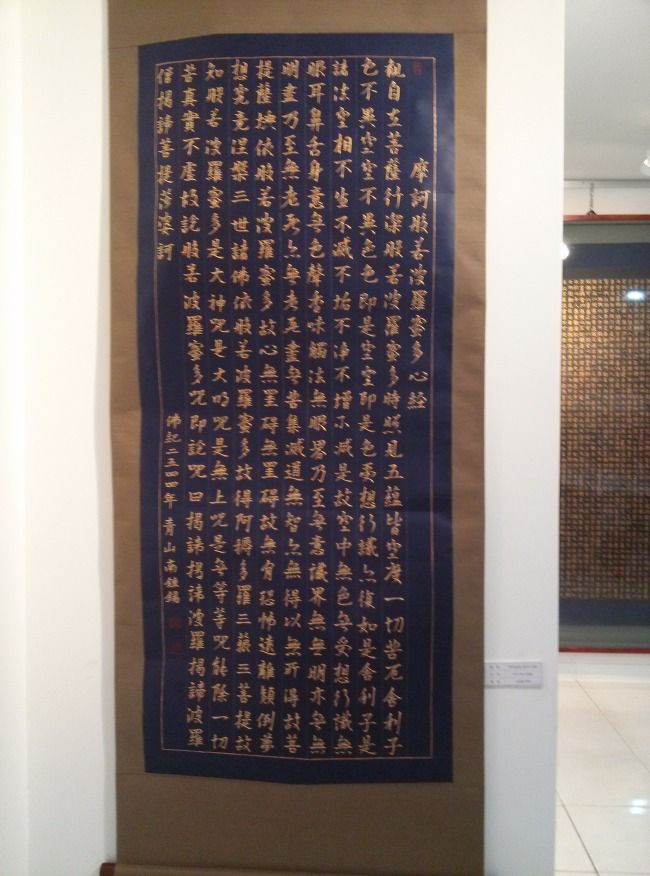 摩訶般若波羅蜜多心經
觀自在菩薩行深般若波羅蜜多時照見五蘊皆空度一切苦厄舍利子
色不異空空不異色色即是空空即是色受想行識亦復如是舍利子是
諸法空相不生不滅不垢不淨不增不減是故空中無色無受想行識無
眼耳鼻舌身意無色聲香味觸法無眼界乃至無意識界無無明亦無無
明盡乃至無老死亦無老死盡無苦集滅道無智亦無得以無所得故菩
提薩埵依般若波羅蜜多故心無罣碍無罣碍故無有恐怖遠離顛倒夢
想究竟涅槃三世諸佛依般若波羅蜜多故得阿耨多羅三藐三菩提故
知般若波羅蜜多是大神呪是大明呪是無上呪是無等等呪能除一切
苦真實不虛故說般若波羅蜜多呪即說呪曰揭諦揭諦波羅揭諦波羅
僧揭諦菩提薩婆訶
佛紀二五四四年 青山 南